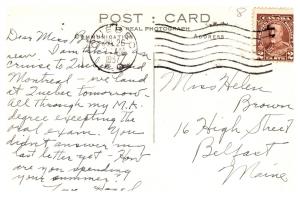 8
POST CARD
REAL PHOTOGRAPH
COMMUNICATION
ADDRESS
1937
Dear Miss
I am taking a
cruise to Quebec and
Montreal - we land
at Quebec tomorrow.
All through my M.A.
degree excepting the
oral exam. You
didn't answer my
last letter yet - How
are you spending
your summer?
Miss Helen
Brown
16 High Street
Belfast
Maine